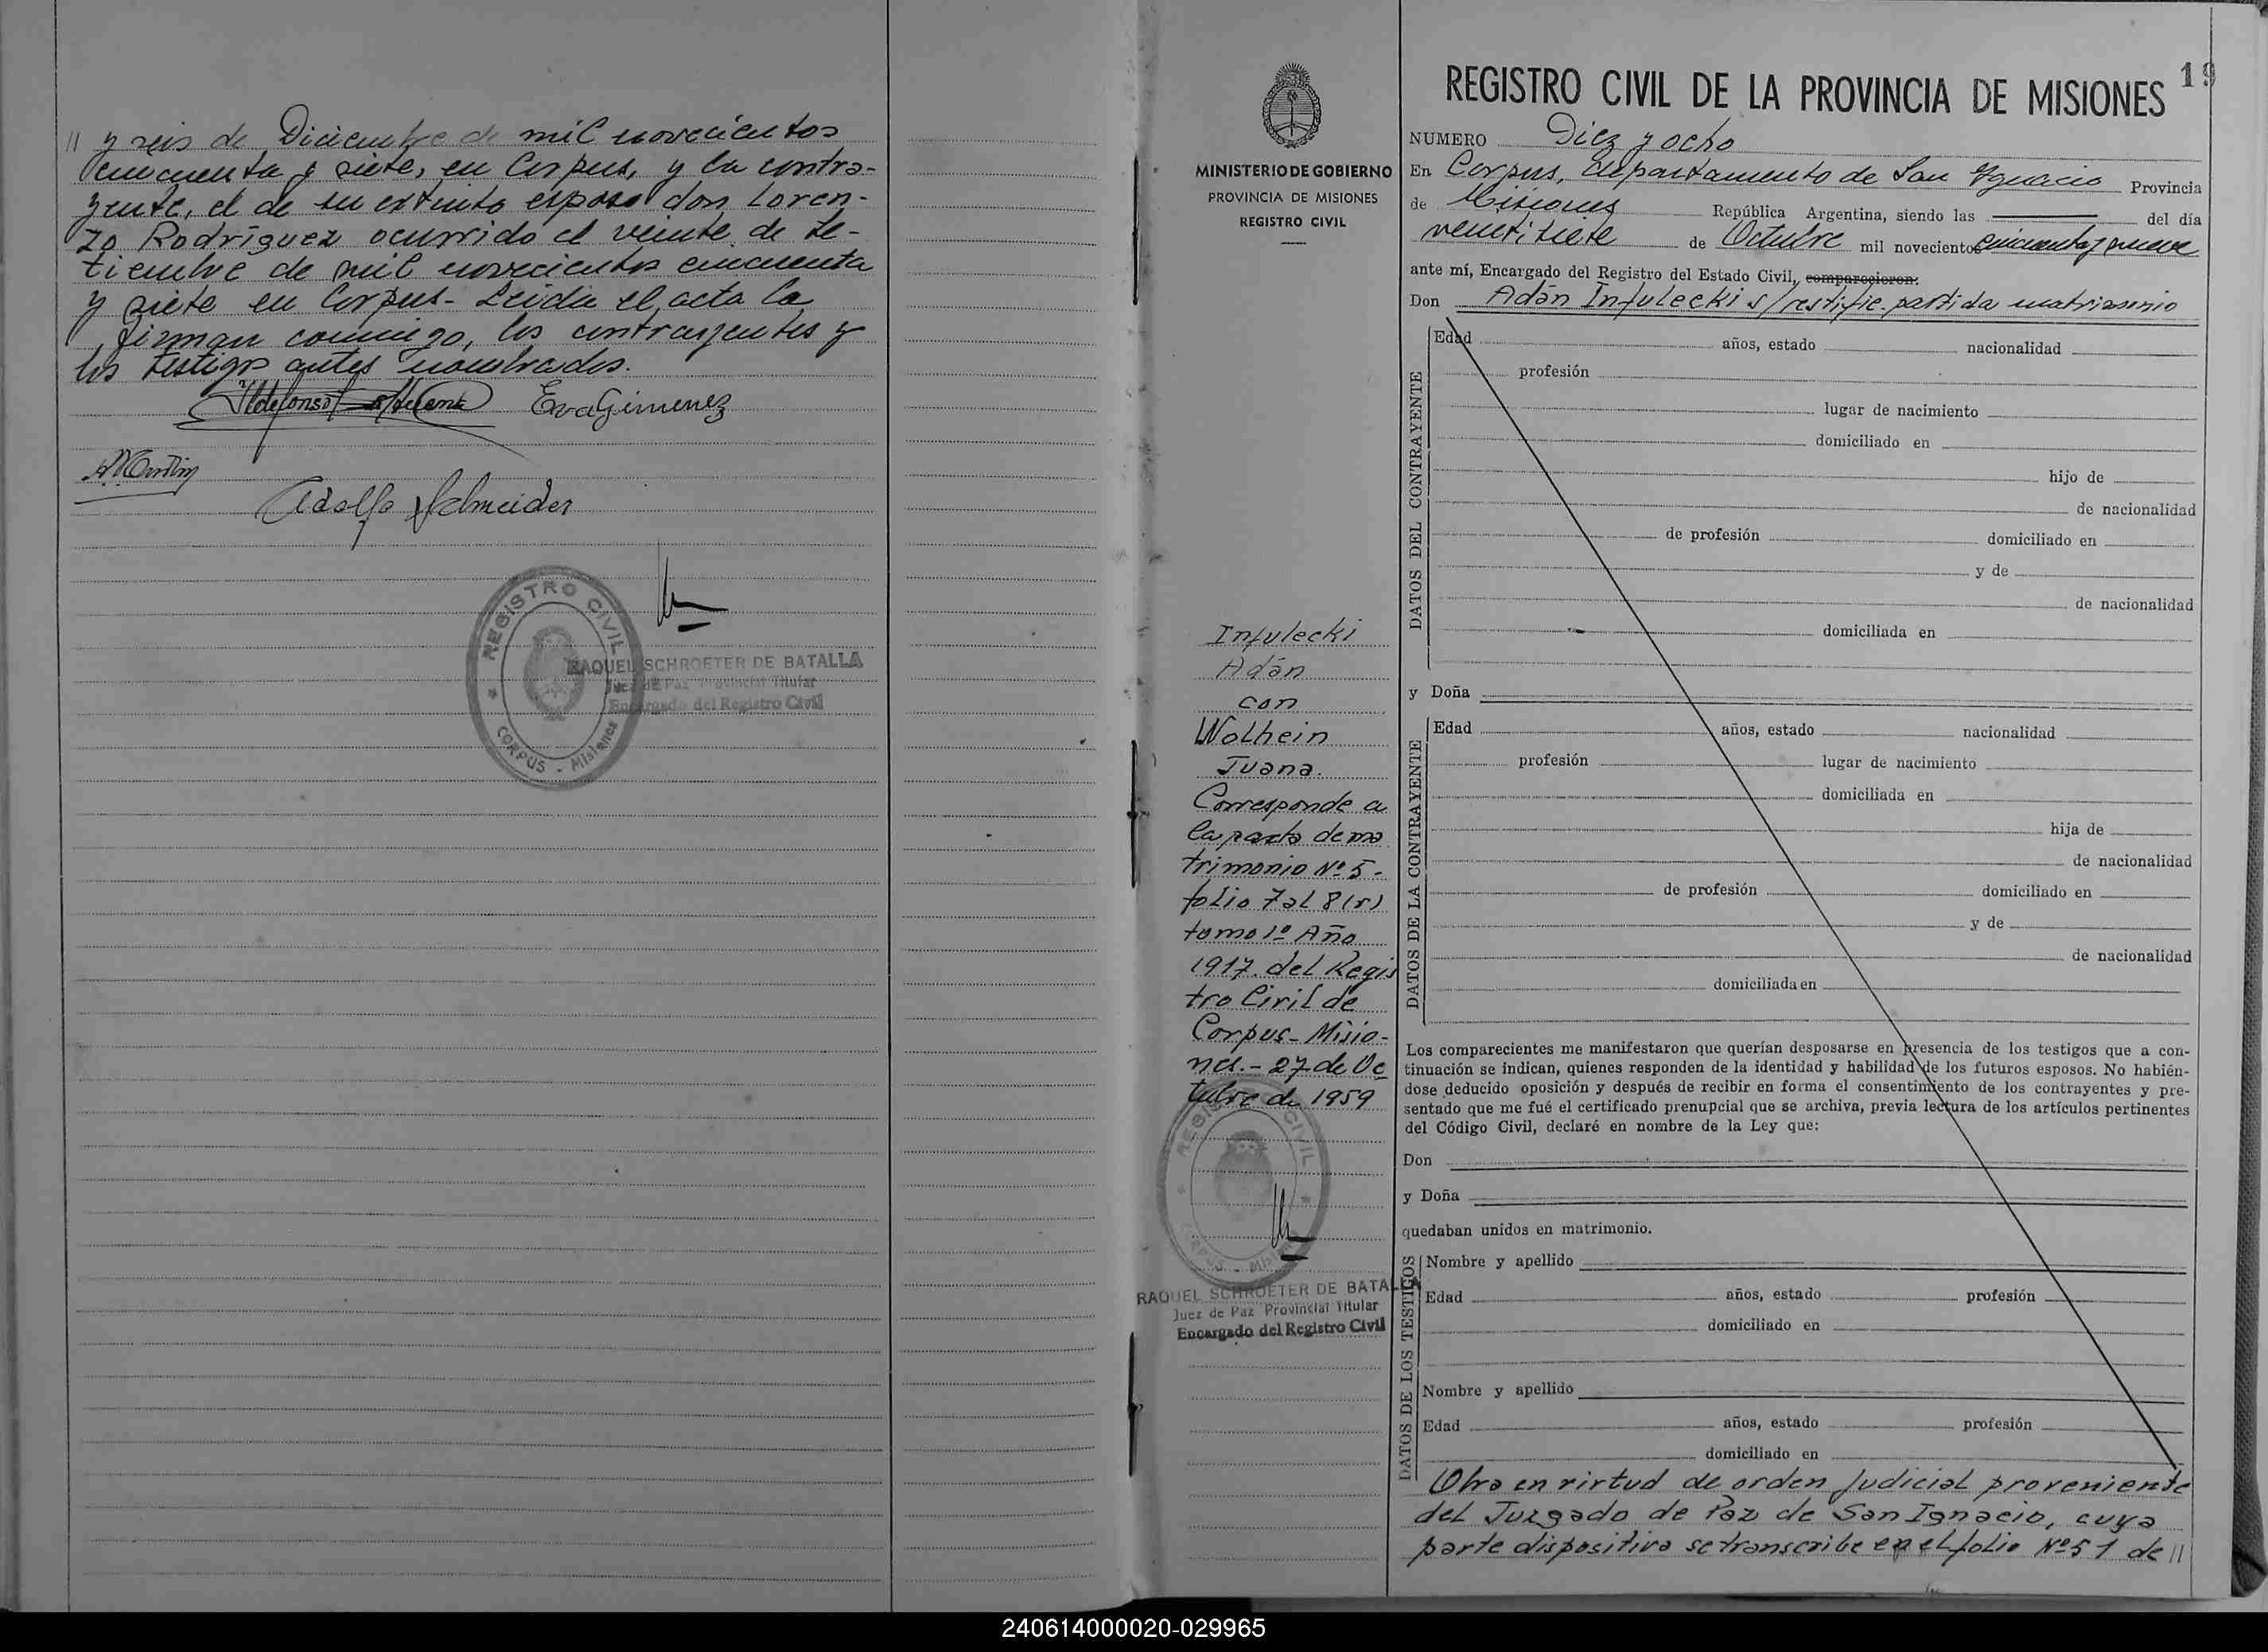 // y seis de Diciembre de mil novecientos
cincuenta y siete, en Corpus, y la contra-
yente, el de su extinto esposo don Loren-
zo Rodríguez ocurrido el veinte de Se-
tiembre de mil novecientos cincuenta
y siete en Corpus- Leída el acta la
firman conmigo, los contrayentes y
los testigos antes nombrados.
Ildefonso Eva Gimenez
Adolfo Schneider
REGISTRO CIVIL
CORPUS - Misiones
RAQUEL SCHROETER DE BATALLA
Juez de Paz Provincial Titular
Encargado del Registro Civil
MINISTERIO DE GOBIERNO
PROVINCIA DE MISIONES
REGISTRO CIVIL
Infulecki
Adán
con
Wolhein
Juana.
Corresponde a
la parta de ma
trimonio Nº 5-
folio 7 al 8 (r)
tomo 1º Año
1917. del Regis
tro Civil de
Corpus- Misio-
nes.- 27 de Oc
tubre de 1959
REGISTRO CIVIL
RAQUEL SCHROETER DE BATALLA
Juez de Paz Provincial Titular
Encargado del Registro Civil
19
REGISTRO CIVIL DE LA PROVINCIA DE MISIONES
NUMERO Diez y ocho
En Corpus, departamento de San Ignacio Provincia
de Misiones República Argentina, siendo las del día
veintisiete de Octubre mil novecientos cincuenta y nueve
ante mí, Encargado del Registro del Estado Civil, comparecieron:
Don Adán Infulecki s/rectific. partida matrimonio
DATOS DEL CONTRAYENTE
Edad años, estado nacionalidad
profesión
lugar de nacimiento
domiciliado en
hijo de
de nacionalidad
de profesión domiciliado en
y de
de nacionalidad
domiciliada en
y Doña
DATOS DE LA CONTRAYENTE
Edad años, estado nacionalidad
profesión lugar de nacimiento
domiciliada en
hija de
de nacionalidad
de profesión domiciliado en
y de
de nacionalidad
domiciliada en
Los comparecientes me manifestaron que querían desposarse en presencia de los testigos que a con-
tinuación se indican, quienes responden de la identidad y habilidad de los futuros esposos. No habién-
dose deducido oposición y después de recibir en forma el consentimiento de los contrayentes y pre-
sentado que me fué el certificado prenupcial que se archiva, previa lectura de los artículos pertinentes
del Código Civil, declaré en nombre de la Ley que:
Don
y Doña
quedaban unidos en matrimonio.
DATOS DE LOS TESTIGOS
Nombre y apellido
Edad años, estado profesión
domiciliado en
Nombre y apellido
Edad años, estado profesión
domiciliado en
Obra en virtud de orden Judicial proveniente
del Juzgado de Paz de San Ignacio, cuya
parte dispositiva se transcribe en el folio Nº 51 de //
240614000020-029965